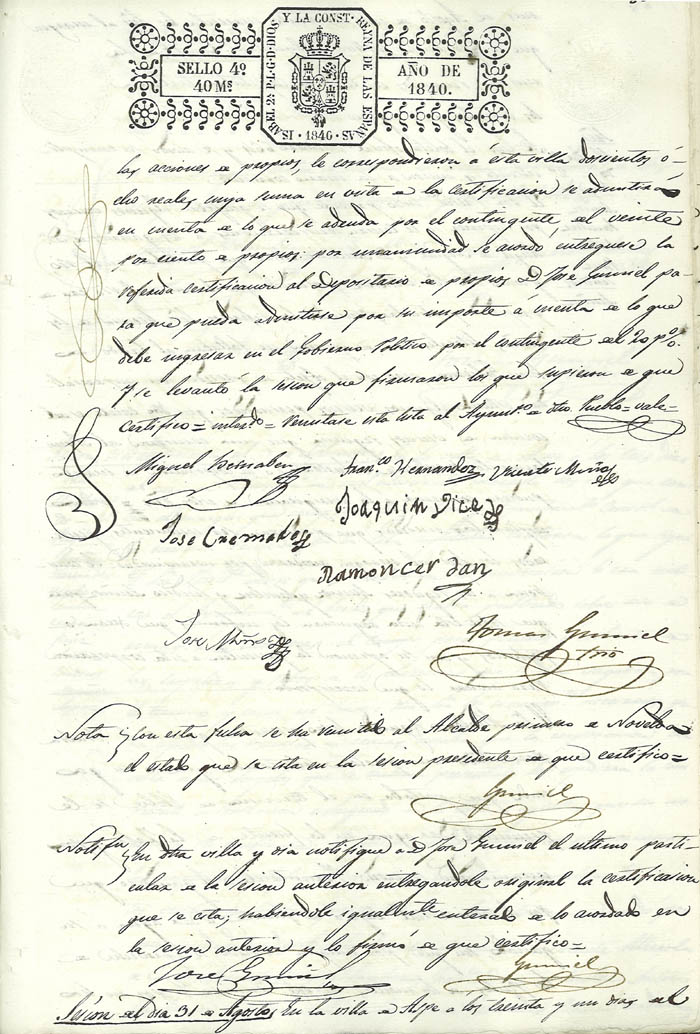 ISABEL 2ª P.L.G.D.DIOS Y LA CONST. REYNA DE LAS ESPAÑAS
SELLO 4º
40 Mˢ
AÑO DE
1840.
· 1840 ·
las acciones de propios, le correspondieron á esta villa doscientos ó-
cho reales cuya suma en vista de la certificacion se admitirá
en cuenta de lo que se adeuda por el contingente del veinte
por ciento de propios: por unanimidad se acordó entreguese la
referida certificacion al Depositario de propios D. Jose Gumiel pa-
ra que pueda admitirse por su importe á cuenta de lo que
debe ingresar en el Gobierno Politico por el contingente del 20 p%.
Y se levantó la sesion que firmaron los que supieron de que
certifico = interdo = remitase esta lista al Ayuntº de dho Pueblo = vale =
Miguel
Franco Hernandez
Vicente Muñoz
Joaquin Vicedo
Jose Cremades
Ramon Cerdan
Jose Muñoz
Tomas Gumiel
srio
Nota
Con esta fecha se ha remitido al Alcalde primero de Novelda
el estado que se cita en la sesion precedente de que certifico =
Gumiel
En dha villa y dia notifiqué á D. Jose Gumiel el ultimo parti-
cular de la sesion anterior entregandole original la certificacion
que se cita; habiendole igualmte enterado de lo acordado en
la sesion anterior y lo firmó de que certifico =
Jose Gumiel
Gumiel
Sesion del Dia 31 de Agosto
En la villa de Aspe a los treinta y un dias del